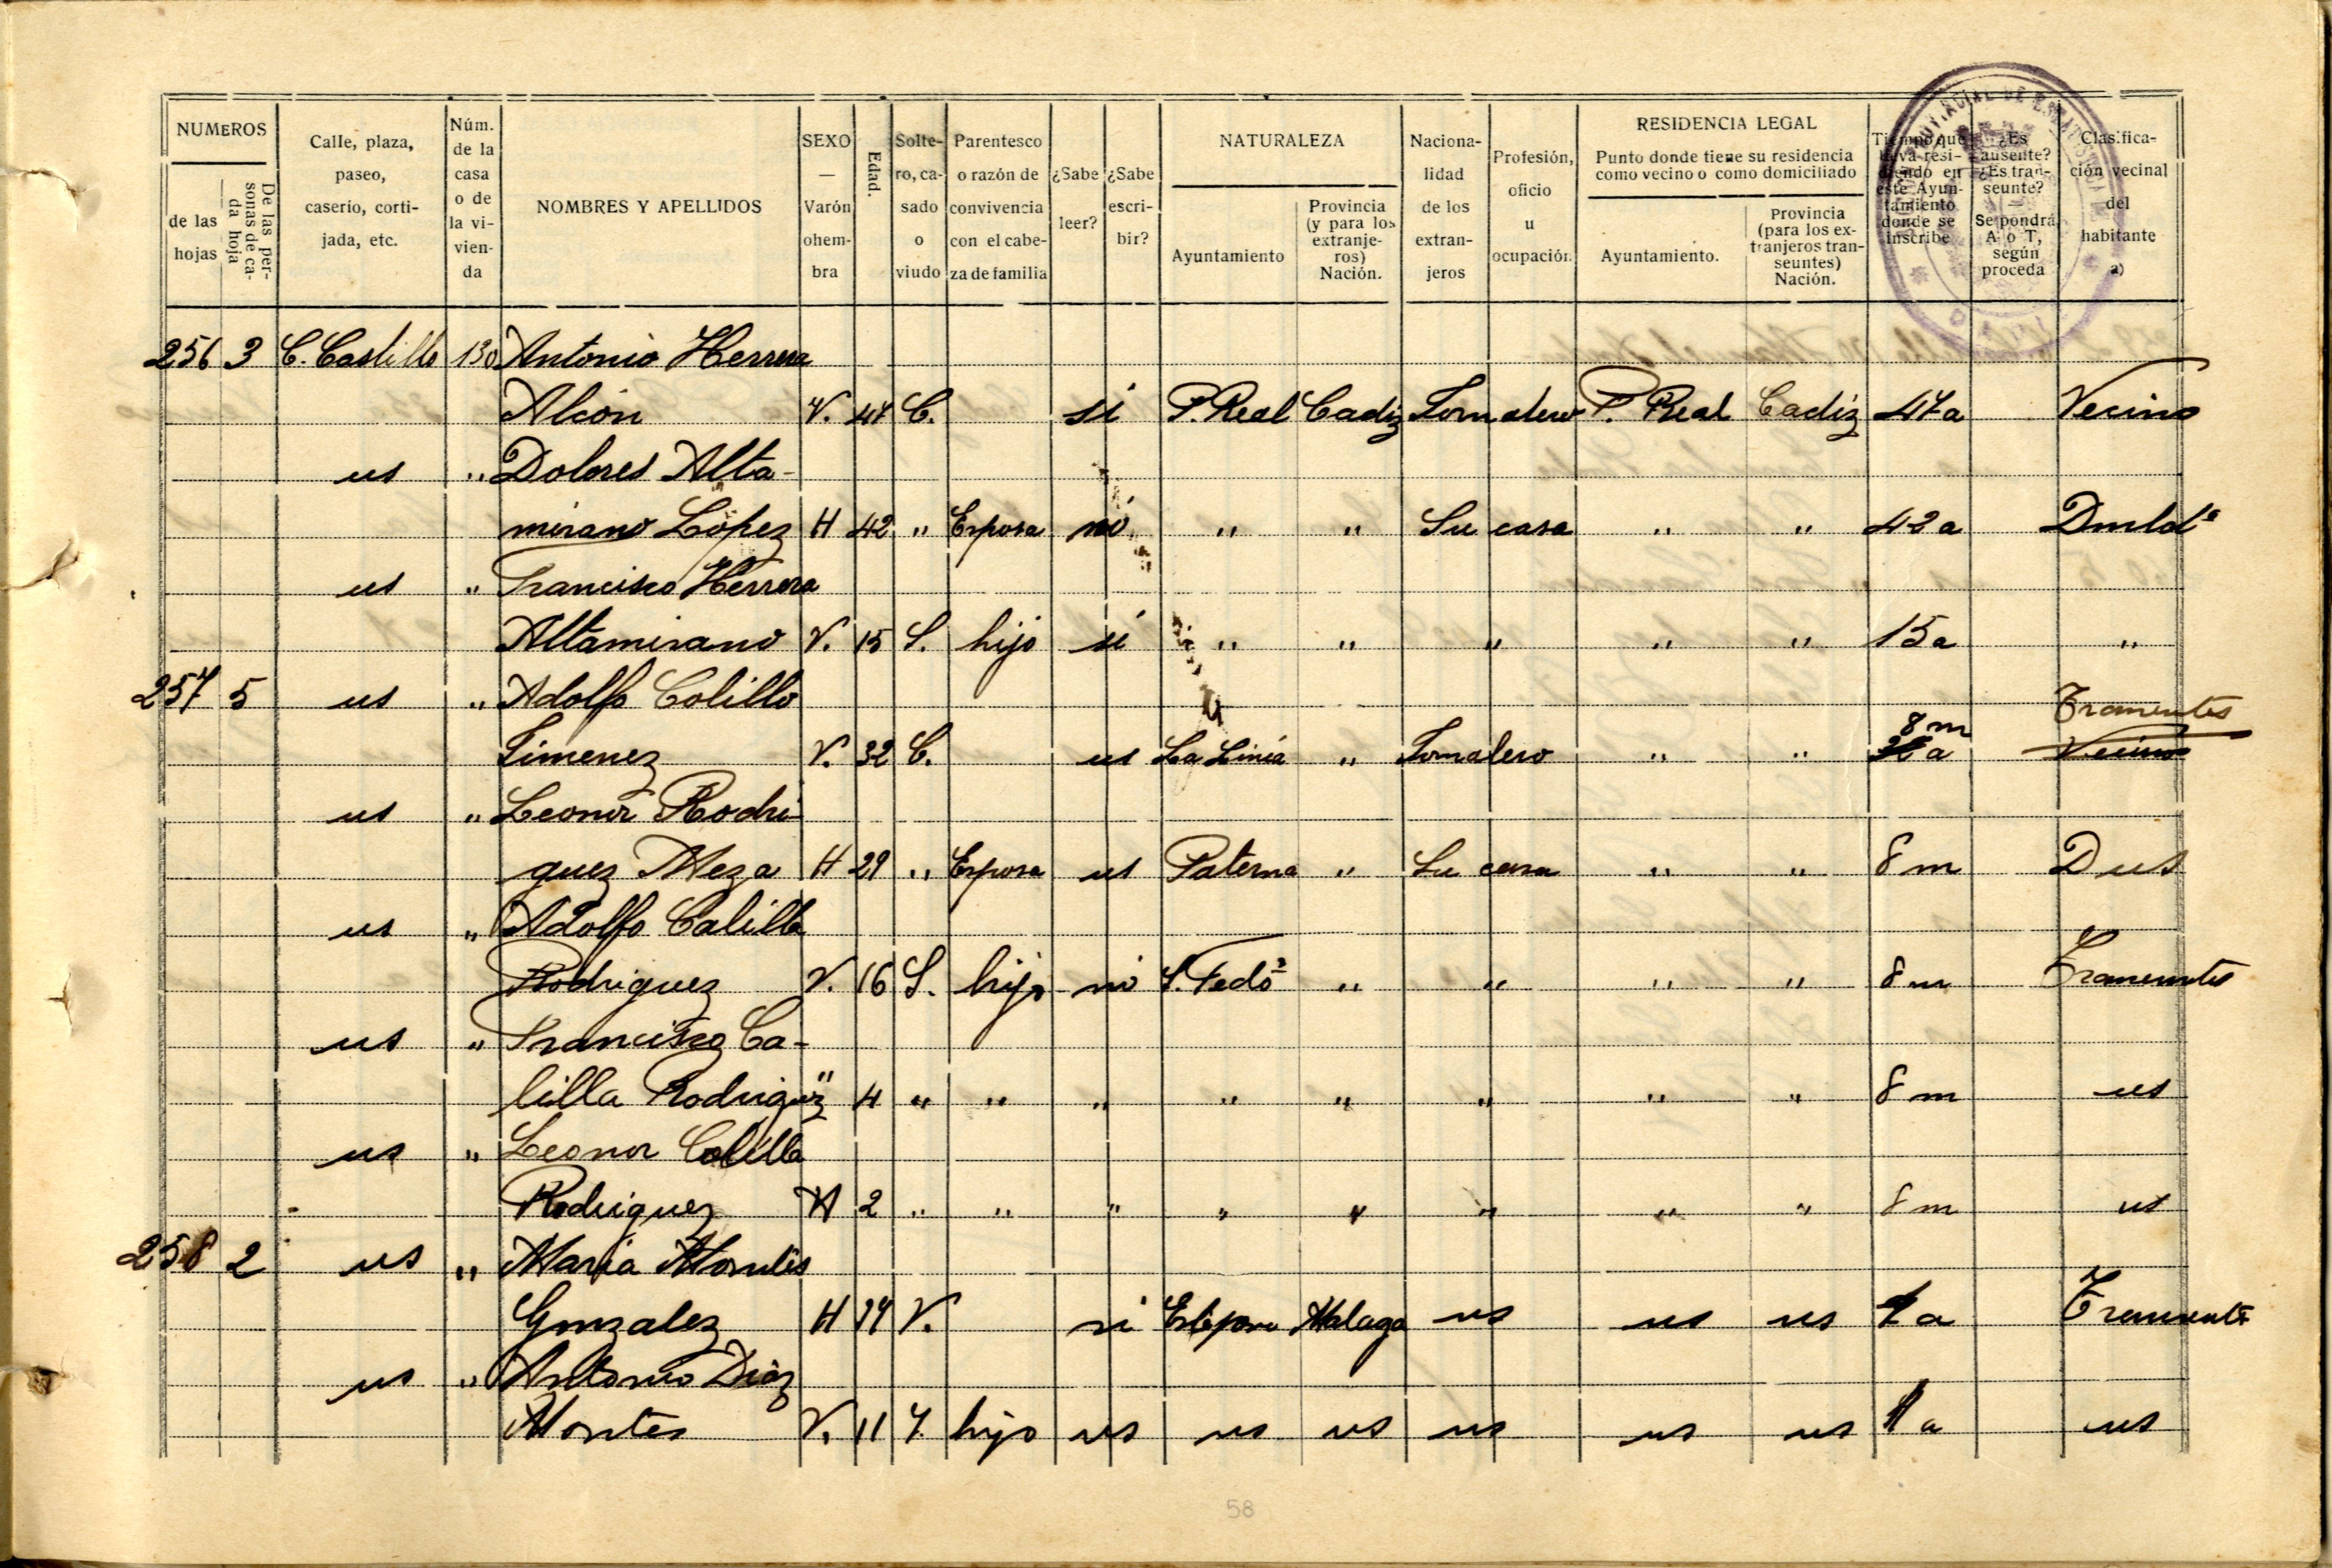 NUMEROS
de las hojas
De las personas de cada hoja
Calle, plaza, paseo, caserio, cortijada, etc.
Núm. de la casa o de la vivienda
NOMBRES Y APELLIDOS
SEXO — Varón o hembra
Edad.
Soltero, casado o viudo
Parentesco o razón de convivencia con el cabeza de familia
¿Sabe leer?
¿Sabe escribir?
NATURALEZA
Ayuntamiento
Provincia (y para los extranjeros) Nación.
Nacionalidad de los extranjeros
Profesión, oficio u ocupación.
RESIDENCIA LEGAL
Punto donde tiene su residencia como vecino o como domiciliado
Ayuntamiento.
Provincia (para los extranjeros transeuntes) Nación.
Tiempo que lleva residiendo en este Ayuntamiento donde se inscribe
¿Es ausente? ¿Es transeunte? — Se pondrá A o T, según proceda
Clasificación vecinal del habitante a)
256 3 C. Castillo 130 Antonio Herrera
Alcón V. 47 C. si P. Real Cadiz Jornalero P. Real Cadiz 47 a Vecino
us " Dolores Alta-
mirano López H 42 " Esposa no " " Su casa " " 42 a Dmldª
us " Francisco Herrera
Altamirano V. 15 S. hijo si " " " " " 15 a "
257 5 us " Adolfo Colillo
Jimenez V. 32 C. us La Linia " Jornalero " " 8 m a Transeuntes Vecino
us " Leonor Rodri-
guez Meza H 29 " Esposa us Paterna " Su casa " " 8 m D us
us " Adolfo Calilla
Rodriguez V. 16 S. hijo no S. Fedo " " " " 8 m Transeuntes
us " Francisco Ca-
lilla Rodriguez " 4 " " " " " " " " 8 m us
us " Leonor Colilla
Rodriguez H 2 " " " " " " " " 8 m us
258 2 us " Maria Montes
Gonzalez H V. Estepona Malaga us us us a Transeunte
us " Antonio Diaz
Montes V. 11 hijo us us us us us us a us
58